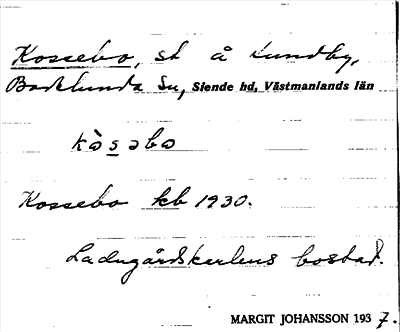 Kossebo, st å Lundby,
Barkarö sn, Siende hd, Västmanlands län
kòsəbo
Kossebo kb 1930.
Ladugårdskarlens bostad.
MARGIT JOHANSSON 1937.